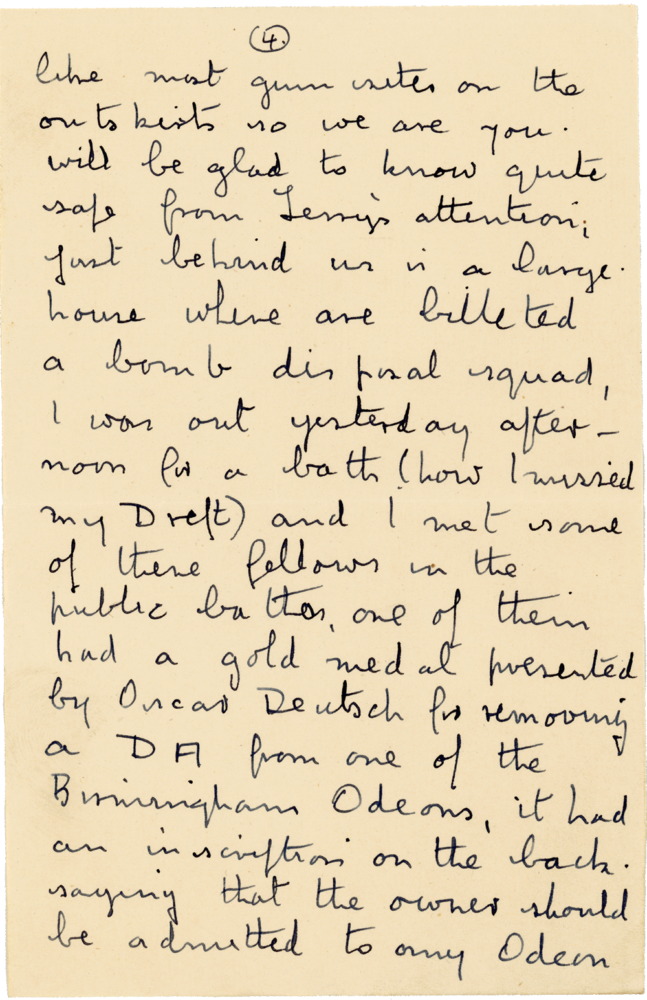 4.
like most gun sites on the
outskirts so we are you.
will be glad to know quite
safe from Jerry's attention;
just behind us is a large.
house where are billeted
a bomb disposal squad,
I was out yesterday after-
noon for a bath (how I missed
my Dreft) and I met some
of these fellows in the
public baths, one of them
had a gold medal presented
by Oscar Deutsch for removing
a DA from one of the
Birmingham Odeons, it had
an inscription on the back.
saying that the owner should
be admitted to any Odeon